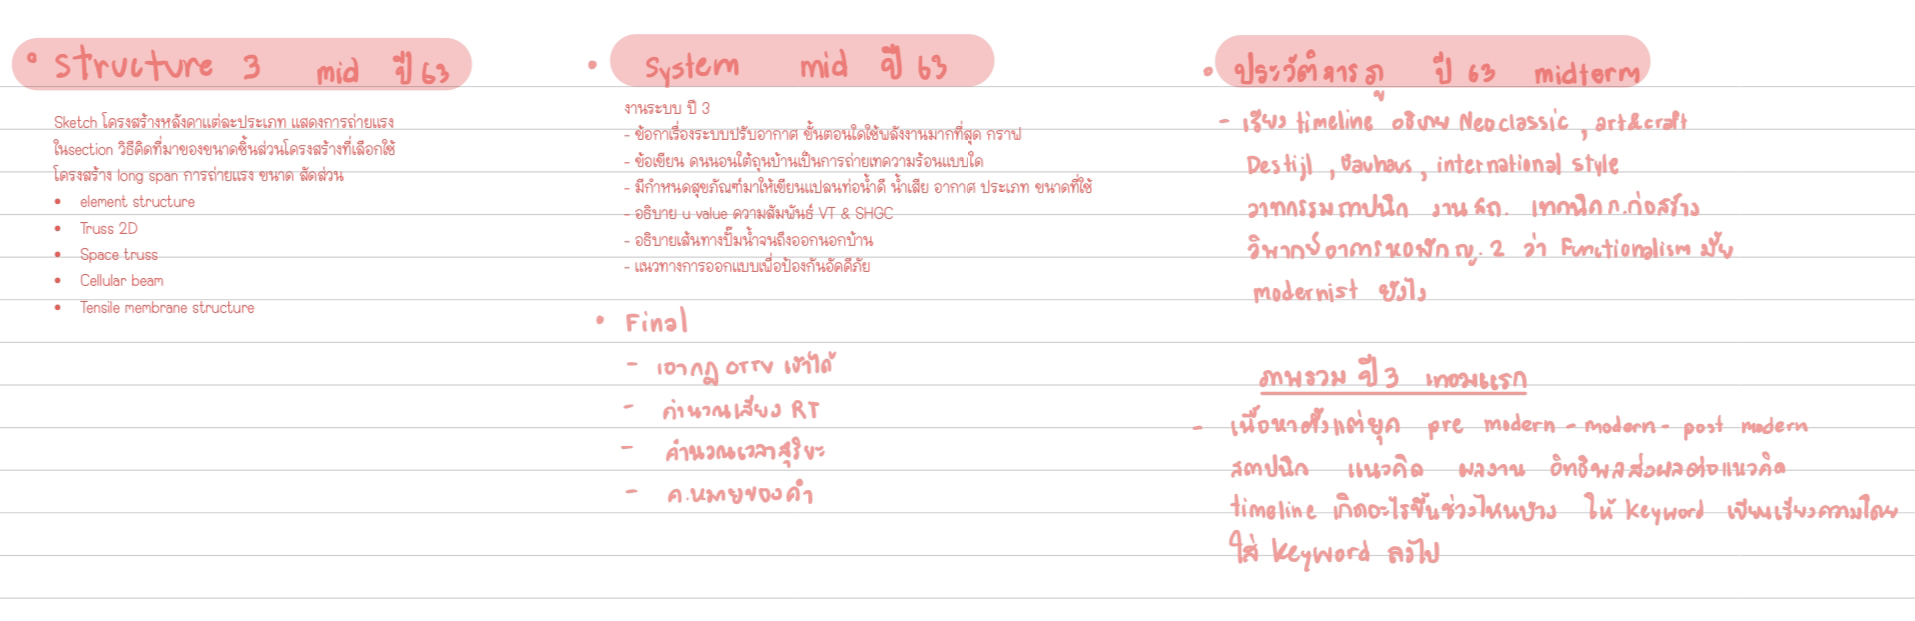 • Structure 3 mid ปี 63
Sketch โครงสร้างหลังคาแต่ละประเภท แสดงการถ่ายแรง
ในsection วิธีคิดที่มาของขนาดชิ้นส่วนโครงสร้างที่เลือกใช้
โครงสร้าง long span การถ่ายแรง ขนาด สัดส่วน
• element structure
• Truss 2D
• Space truss
• Cellular beam
• Tensile membrane structure
• System mid ปี 63
งานระบบ ปี 3
- ข้อกาเรื่องระบบปรับอากาศ ขั้นตอนใดใช้พลังงานมากที่สุด กราฟ
- ข้อเขียน คนนอนใต้ถุนบ้านเป็นการถ่ายเทความร้อนแบบใด
- มีกำหนดสุขภัณฑ์มาให้เขียนแปลนท่อน้ำดี น้ำเสีย อากาศ ประเภท ขนาดที่ใช้
- อธิบาย u value ความสัมพันธ์ VT & SHGC
- อธิบายเส้นทางปั๊มน้ำจนถึงออกนอกบ้าน
- แนวทางการออกแบบเพื่อป้องกันอัคคีภัย
• Final
- เอากฎ OTTV เข้าได้
- คำนวณเสียง RT
- คำนวณเวลาสุริยะ
- ค.หมายของคำ
• ประวัติจารภู ปี 63 midterm
- เรียง timeline อธิบาย Neoclassic , art&craft
Destijl , Bauhaus , international style
วาทกรรมสถาปนิก งานสถ. เทคนิคก.ก่อสร้าง
วิพากษ์อาคารหอพัก ญ.2 ว่า Functionalism มั้ย
modernist ยังไง
ภาพรวม ปี 3 เทอมแรก
- เนื้อหาตั้งแต่ยุค pre modern - modern - post modern
สถาปนิก แนวคิด ผลงาน อิทธิพลส่งผลต่อแนวคิด
timeline เกิดอะไรขึ้นช่วงไหนบ้าง ให้ keyword เขียนเรียงความโดย
ใส่ keyword ลงไป